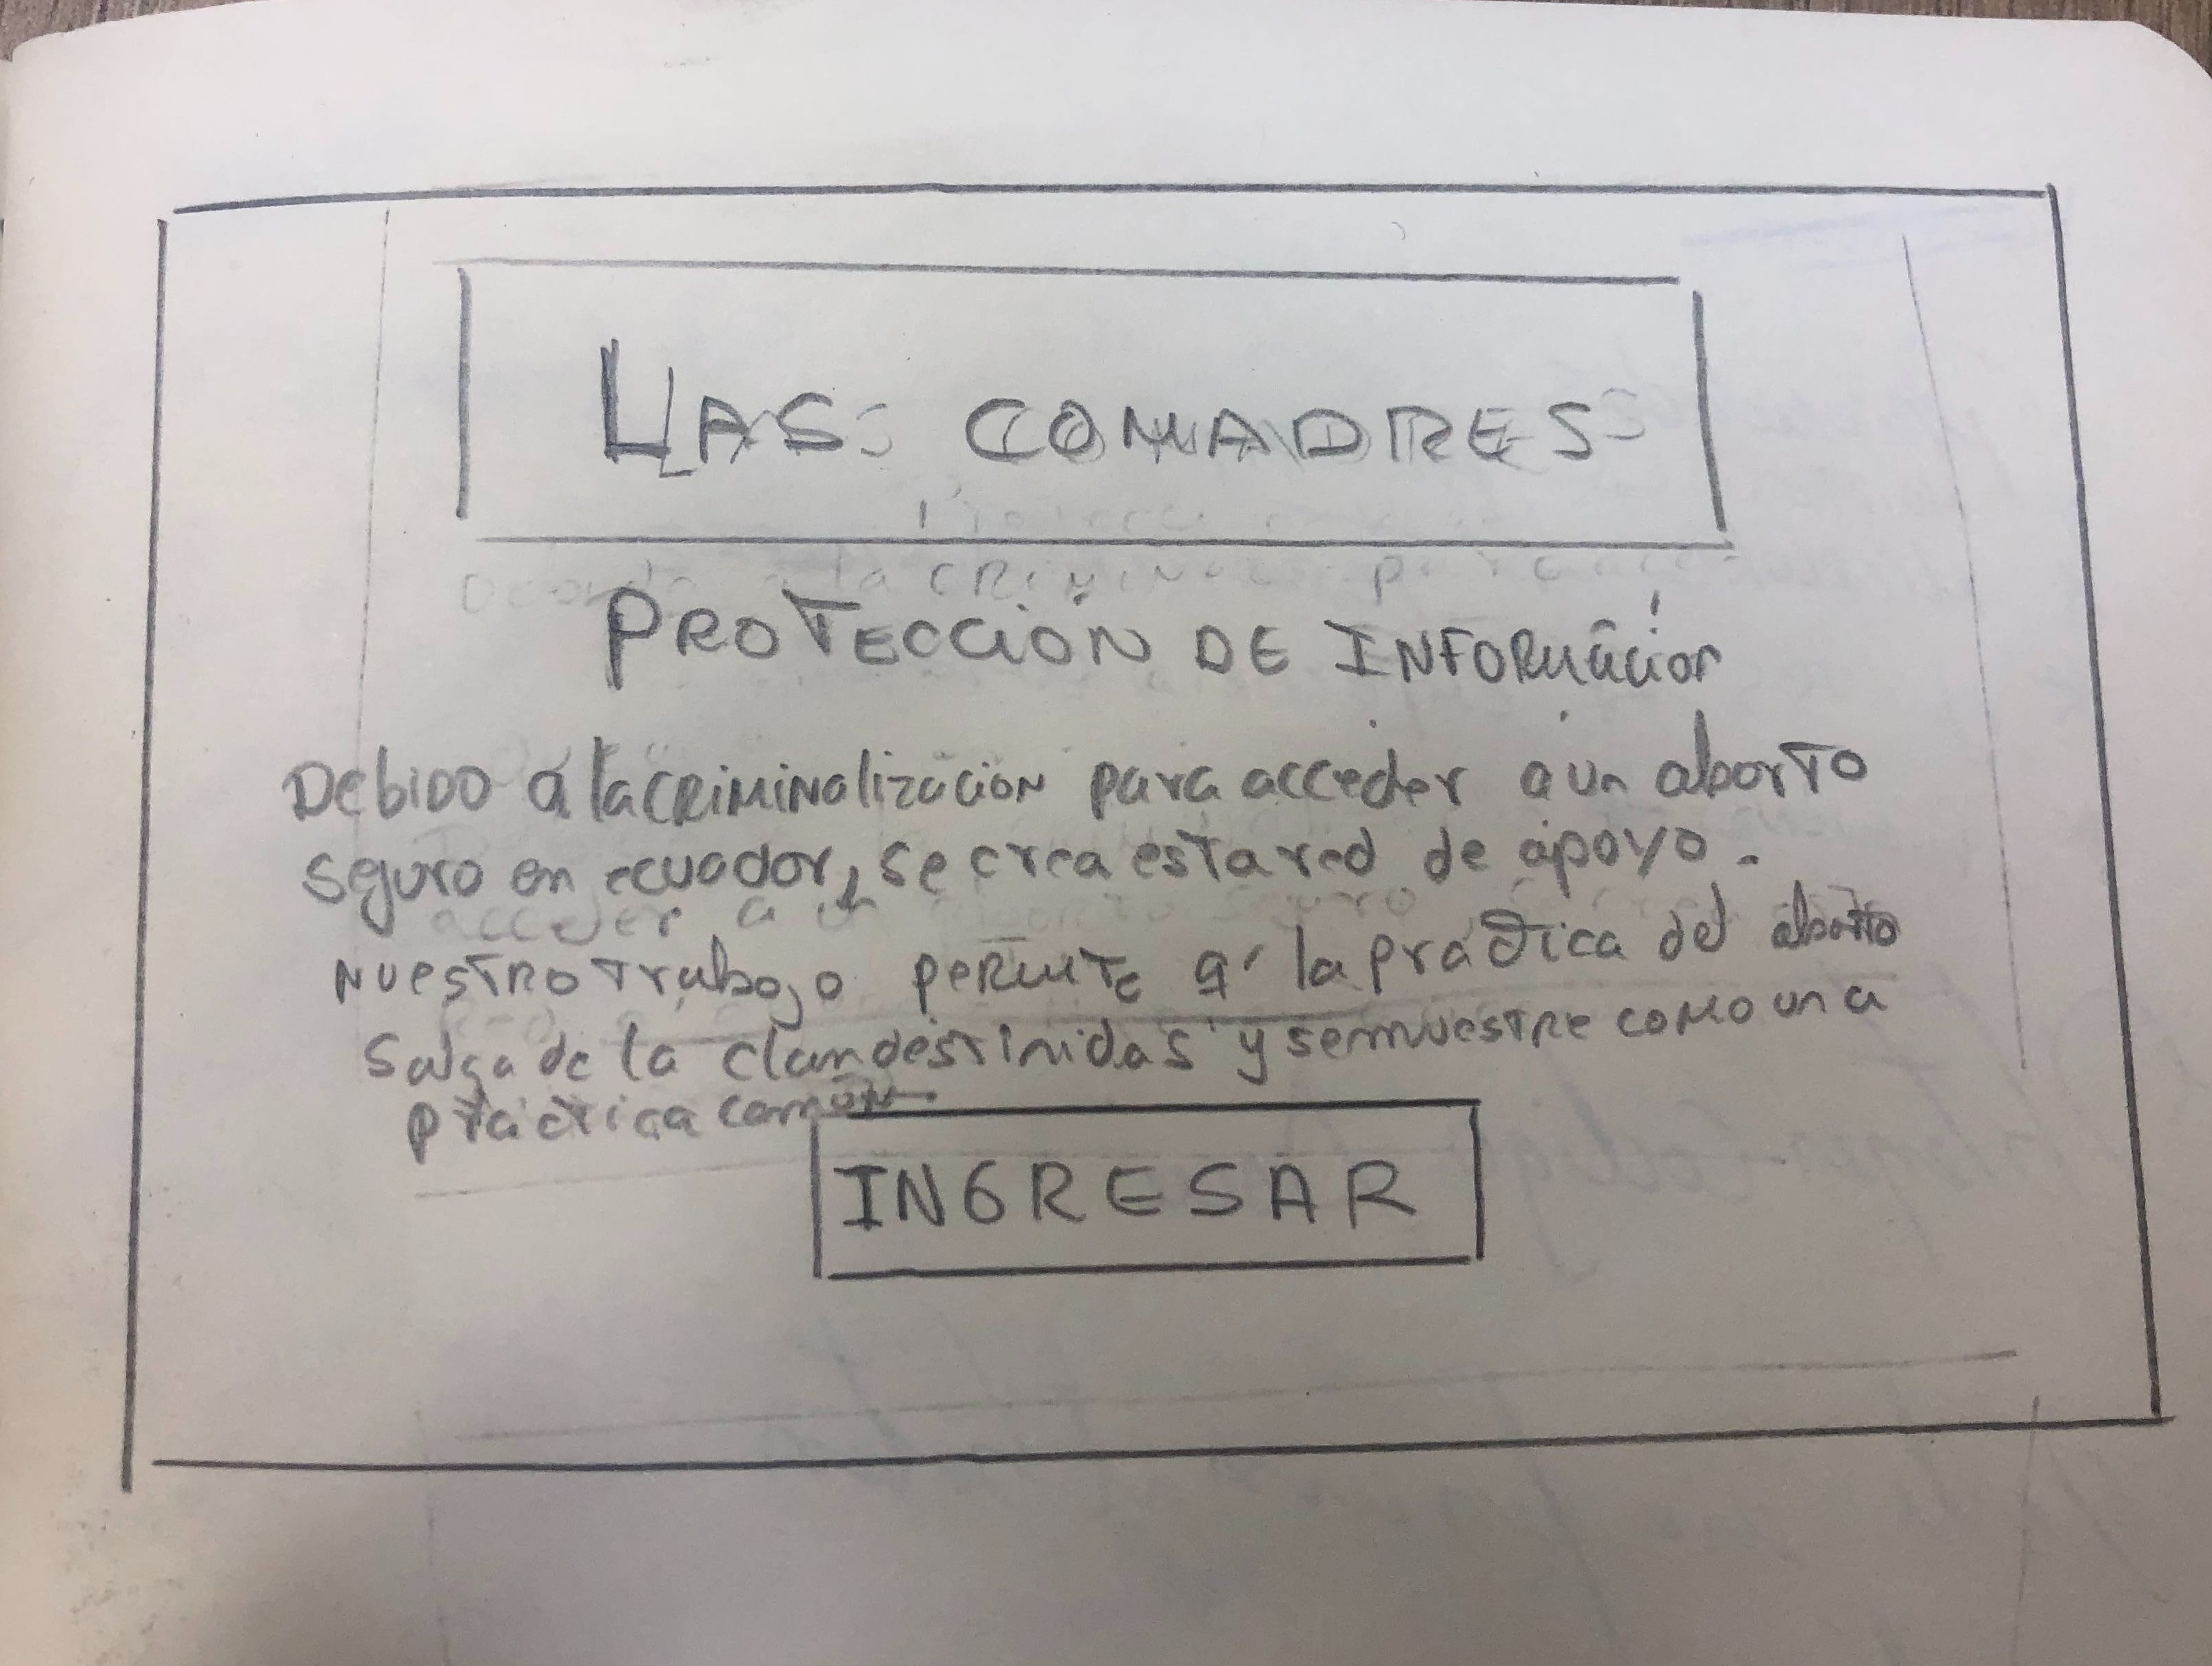 LAS COMADRES
PROTECCIÓN DE INFORMACIÓN
DEbIDO a la CRIMINalización para acceder a un aborto
seguro en ecuador, se crea esta red de apoyo.
NUESTRO Trabajo PERMITE q' la práctica del aborto
Salga de la clandestinidas y se muestre como una
práctica común.
INGRESAR